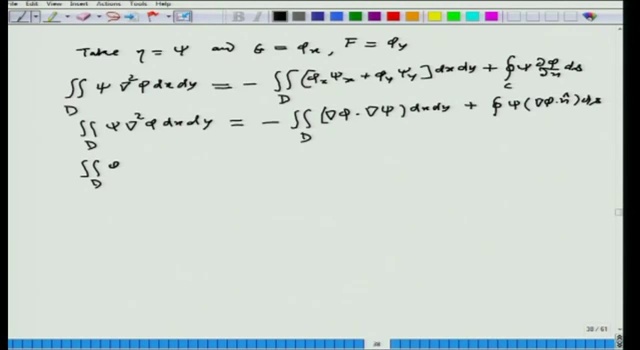 File Edit View Insert Actions Tools Help
Take η = ψ and G = φₓ, F = φᵧ
∬_D ψ ∇²φ dx dy = - ∬_D [φₓ ψₓ + φᵧ ψᵧ] dx dy + ∮_C ψ ∂φ/∂n ds
∬_D ψ ∇²φ dx dy = - ∬_D (∇φ · ∇ψ) dx dy + ∮ ψ (∇φ · n̂) ds
∬_D φ
38 / 61
38